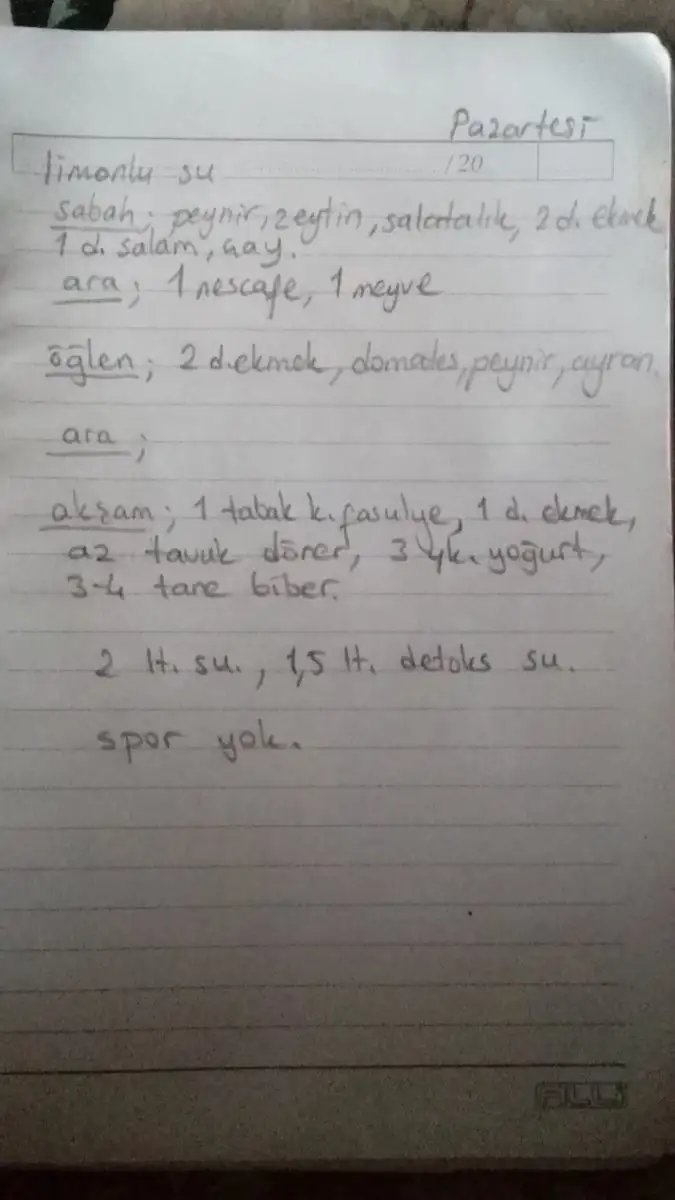 Pazartesi
/20
limonlu su
sabah; peynir, zeytin, salatalık, 2 d. ekmek
1 d. salam, çay.
ara; 1 nescafe, 1 meyve
öğlen; 2 d. ekmek, domates, peynir, ayran.
ara;
akşam; 1 tabak k. fasulye, 1 d. ekmek,
az tavuk döner, 3 yk. yoğurt,
3-4 tane biber.
2 lt. su., 1,5 lt. detoks su.
spor yok.
FİLLİ